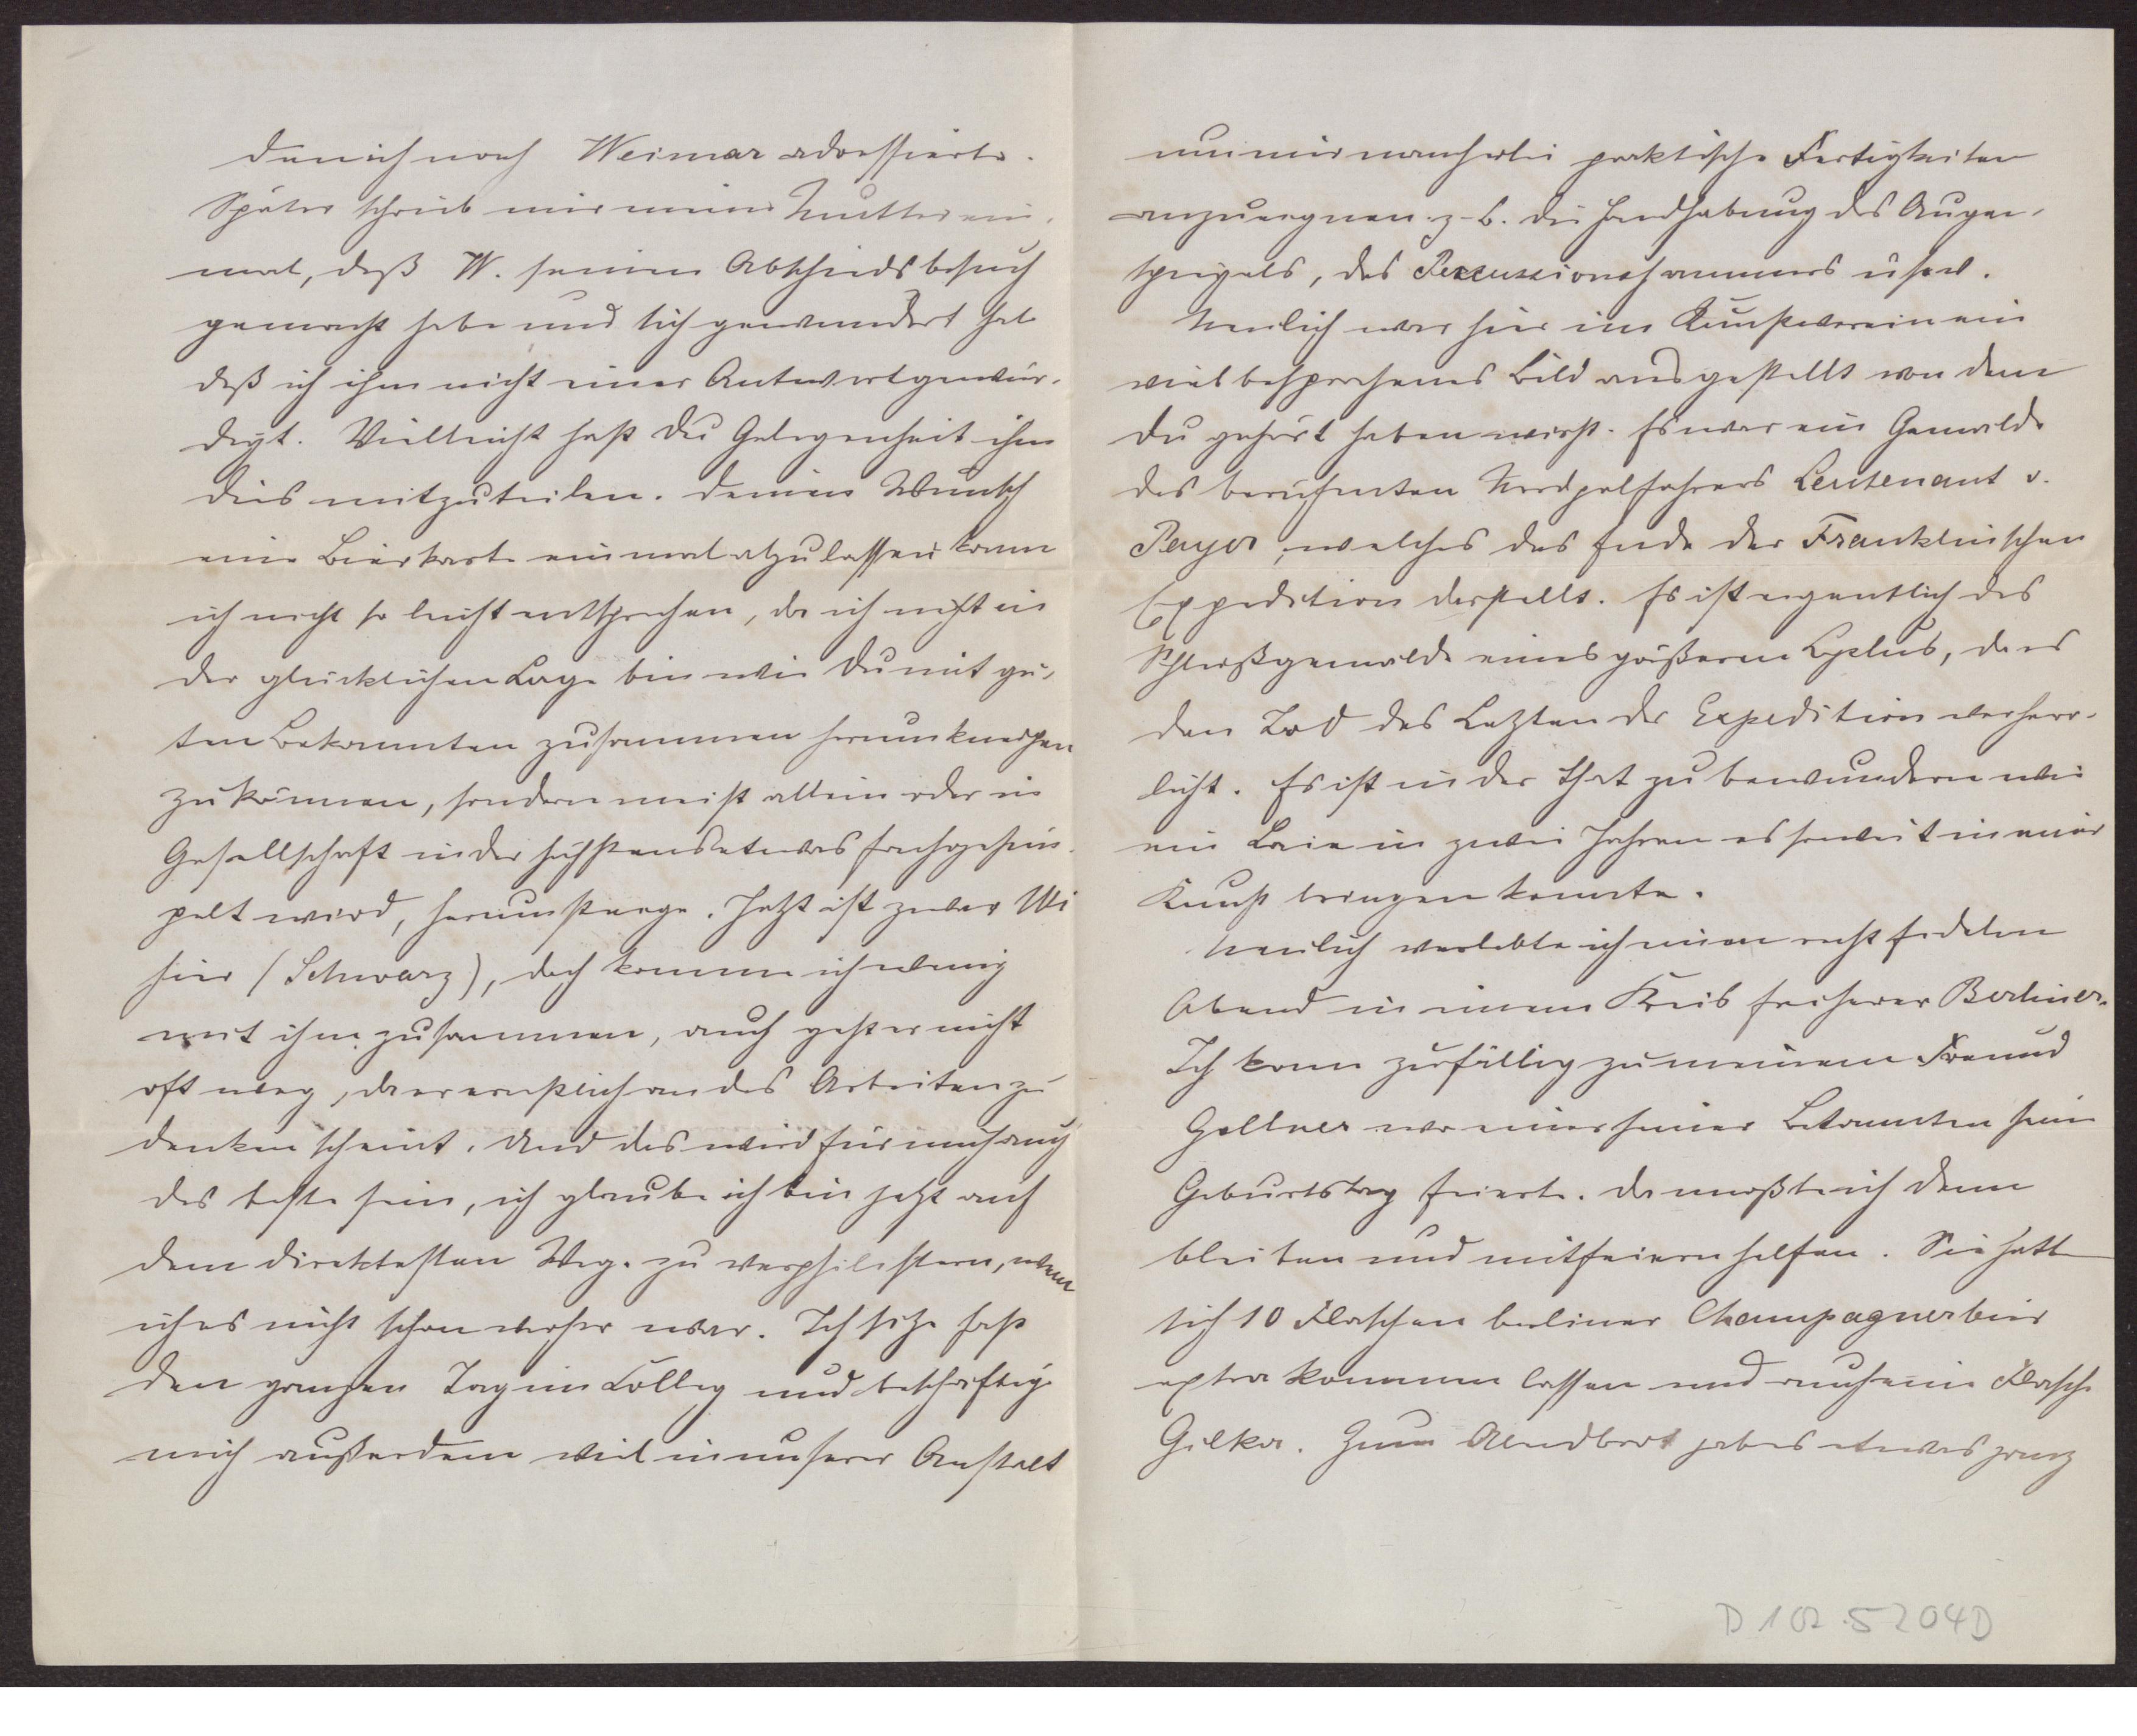 den ich nach Weimar adressierte.
Später schrieb mir meine Mutter ein-
mal, daß W. seinen Abschiedsbesuch
gemacht habe und sich gewundert hab
daß ich ihn nicht einer Antwort gewür-
digt. Vielleicht hast Du Gelegenheit ihm
dies mitzuteilen. Deinem Wunsch
eine Bierkarte einmal abzulassen kann
ich nicht so leicht entsprechen, da ich nicht in
der glücklichen Lage bin wie Du mit gu-
ten Bekannten zusammen herumkneipen
zu können, sondern meist allein oder in
Gesellschaft in der höchstens etwas fachgesim-
pelt wird, herumsteige. Jetzt ist zwar Wi
hier (Schwarz), doch komme ich wenig
mit ihm zusammen, auch geht er nicht
oft weg, da er ernstlich an das Arbeiten zu
denken scheint. Und das wird für mich auch
das beste sein, ich glaube ich bin jetzt auf
dem direktesten Wege zu verphilistern, wenn
ich es nicht schon vorher war. Ich sitze fast
den ganzen Tag im Colleg und beschäftige
mich außerdem viel in unserer Anstalt
um mir mancherlei praktische Fertigkeiten
anzueignen z. B. die Handhabung des Augen-
spiegels, des Percussionshammers usw.
Neulich war hier im Kunstverein ein
vielbesprochenes Bild ausgestellt von dem
Du gehört haben wirst. Es war ein Gemälde
des berühmten Nordpolfahrers Leutenant v.
Payer, welches das Ende der Franklinschen
Expedition darstellt. Es ist eigentlich das
Schlußgemälde eines größeren Cyclus, da es
den Tod des Letzten der Expedition verherr-
licht. Es ist in der That zu bewundern wie
ein Laie in zwei Jahren es soweit in einer
Kunst bringen konnte.
Neulich verlebte ich einen recht fidelen
Abend in einem Kreis früherer Berliner.
Ich kam zufällig zu meinem Freund
Gellner wo einer seiner Bekannten sein
Geburtstag feierte. Da mußte ich denn
bleiben und mitfeiern helfen. Sie hatt
sich 10 Flaschen berliner Champagnerbier
extra kommen lassen und auch eine Flasche
Gilka. Zum Abendbrot gab es etwas ganz
D 102.5204D